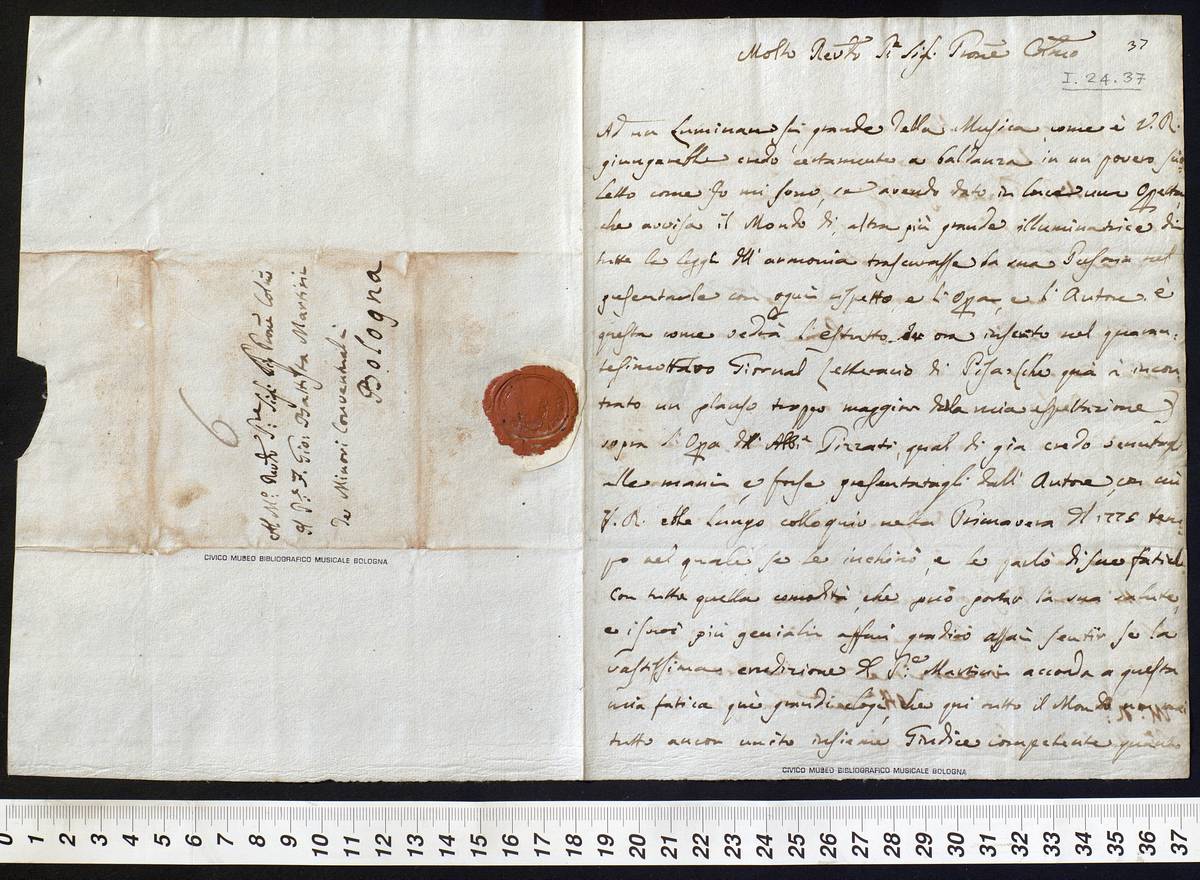 6
Al M.º Revdo Pre Sigr Prone Colmo
Il P.re F. Gio: Batista Martini
de Minori Conventuali
Bologna
CIVICO MUSEO BIBLIOGRAFICO MUSICALE BOLOGNA
37
Molto Revdo Pre Sigr Prone Colmo
I. 24. 37
Ad un Luminare sì grande della Musica come è V. R.
giungerebbe credo certamente a baldanza in un povero
letto come Io mi sono, se avendo dato in luce una Opretta,
che avvisa il Mondo di altra più grande illuminatrice di
tutte le leggi dell'armonia trascurasse la sua Persona nel
presentarle con ogni rispetto, e l'Opra, e l'Autore. è
questa come vedrà l'estratto or ora inserito nel quaran:
tesimottavo Giornal Letterario di Pisa (che quà à incon
trato un plauso troppo maggior della mia aspettazione)
sopra l'Opra dell' Abbe Pizzati, qual di già credo venutagli
alle mani, e forse presentatagli dall' Autore, con cui
V. R. ebbe lungo colloquio nella Primavera del 1775 tem
po nel quale se le inchinò, e le parlò di sue fatiche
Con tutta quella comodità, che può portar la sua salute,
e i suoi più geniali affari gradirò assai sentir se la
vastissima erudizione del P.re Martini accorda a questa
mia fatica que' grandi elogi, che qui tutto il Mondo non mai
tutto ancor unito insieme Giudice competente quanto
CIVICO MUSEO BIBLIOGRAFICO MUSICALE BOLOGNA
0 1 2 3 4 5 6 7 8 9 10 11 12 13 14 15 16 17 18 19 20 21 22 23 24 25 26 27 28 29 30 31 32 33 34 35 36 37